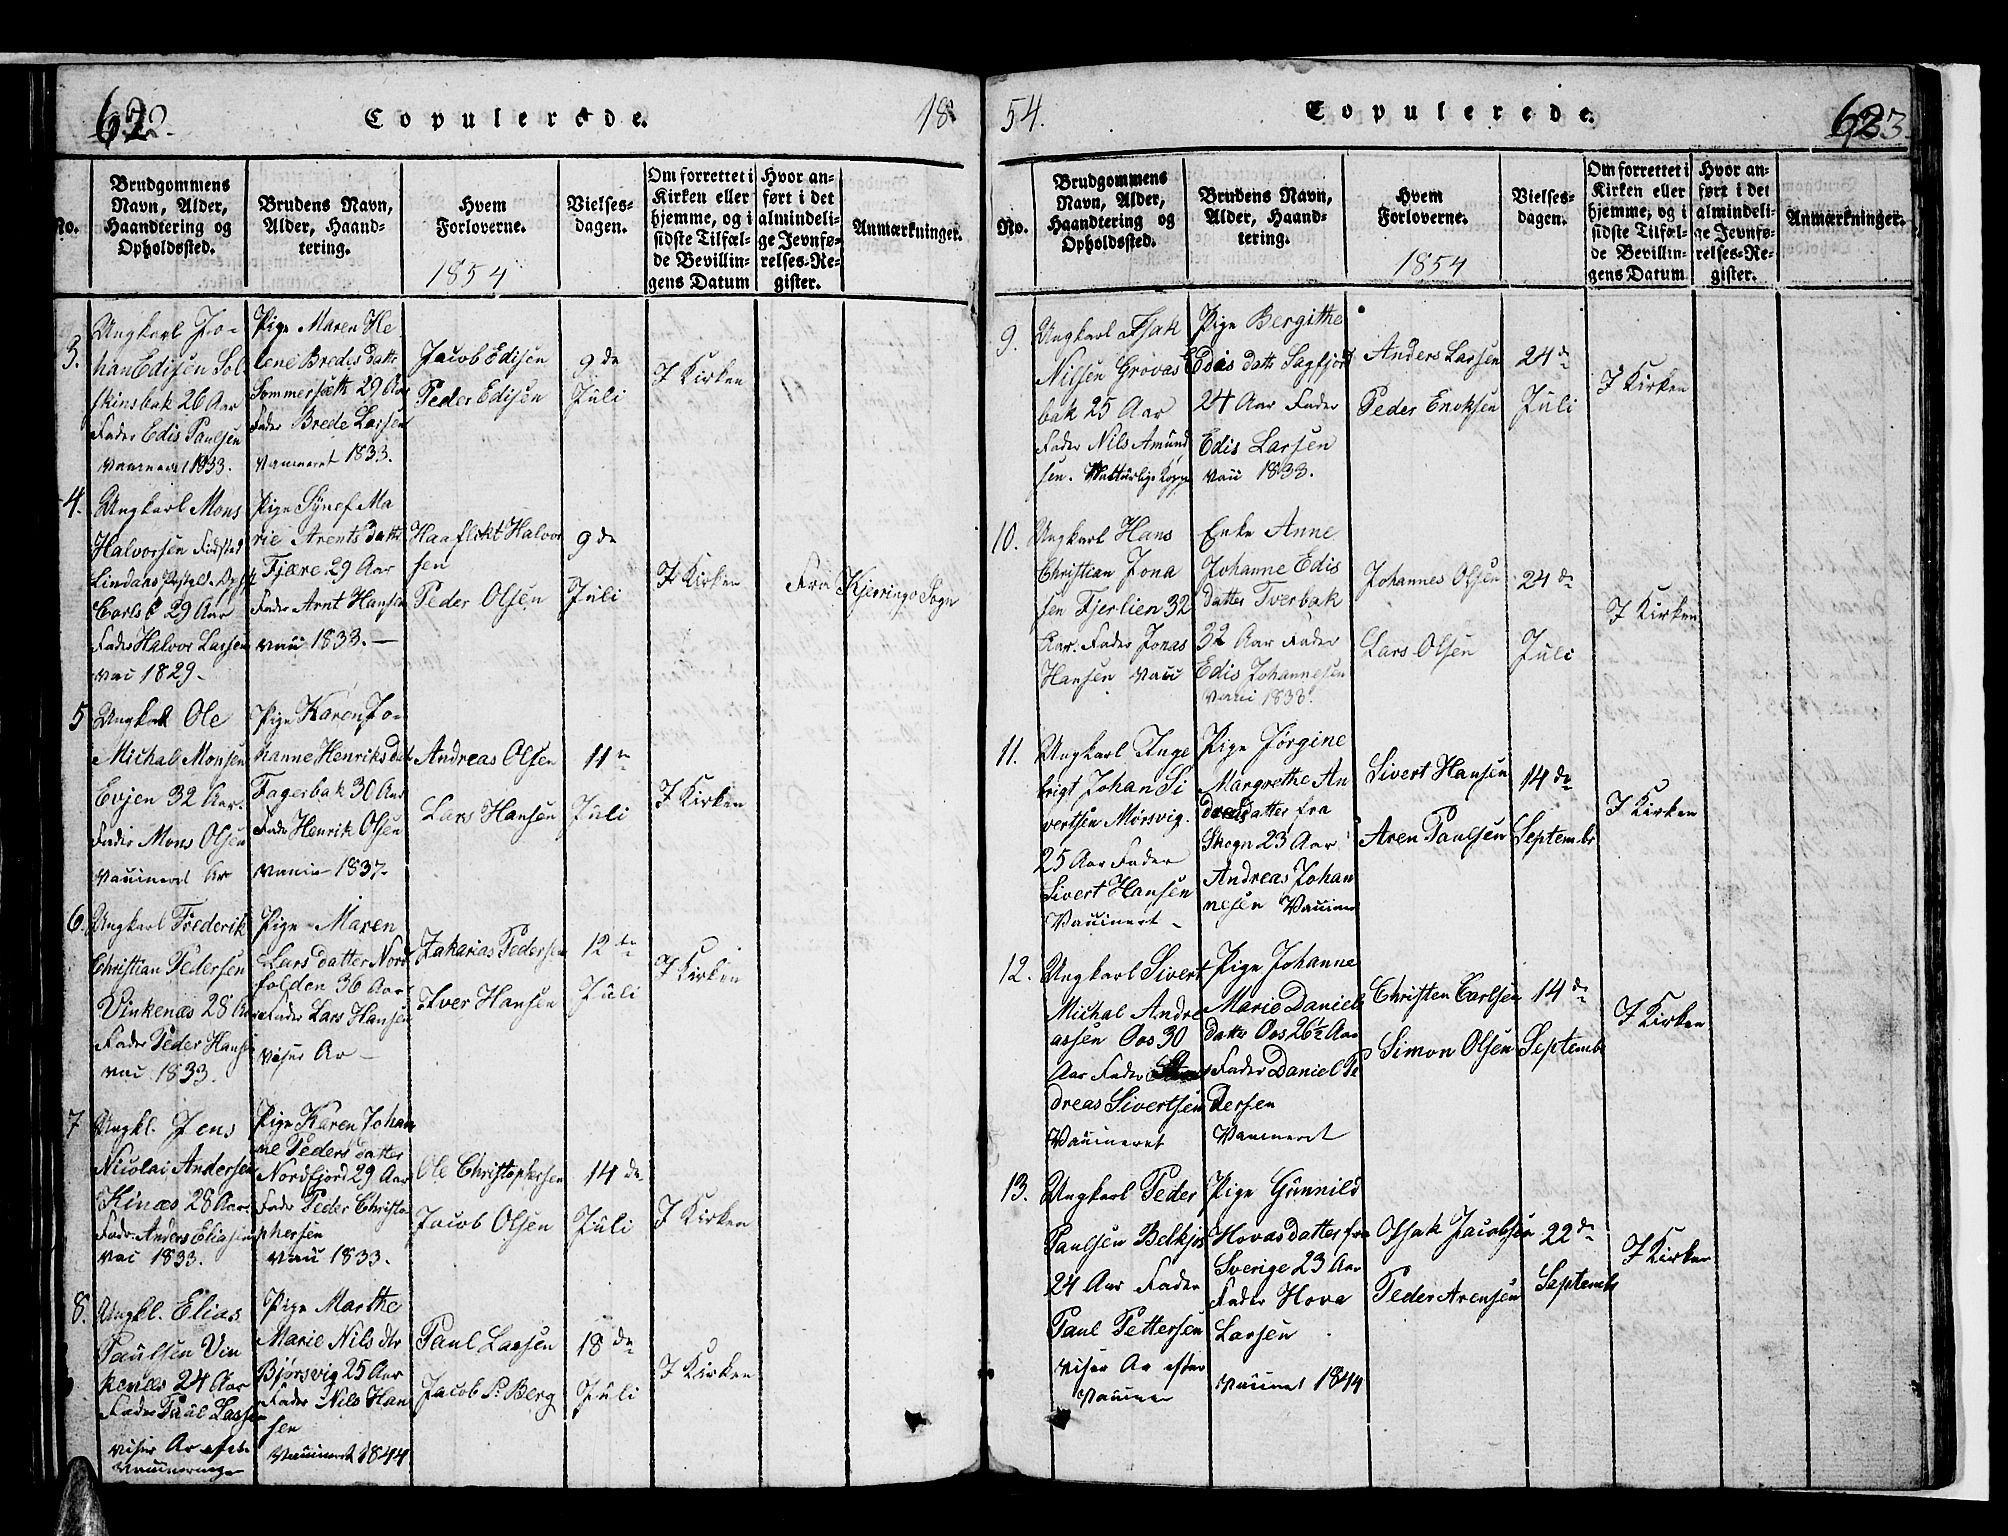 622.
Copulerede.
18
No.
Brudgommens
Navn, Alder,
Haandtering og
Opholdssted.
Brudens Navn,
Alder, Haand-
tering.
Hvem
Forloverne.
1854
Vielses-
dagen.
Om forrettet i
Kirken eller
hjemme, og i
sidste Tilfæl-
de Bevillin-
gens Datum
Hvor an-
ført i det
almindeli-
ge Jevnfø-
relses-Re-
gister.
Anmærkninger.
3.
Ungkarl Jo-
han Edisen Sol
skinsbak 26 Aar
Fader Edis Paulsen
1833.
Pige Maren He
lene Bredesdattr
Sommersæth 29 Aar
Fader Brede Larsen
1833.
Jacob Edisen
Peder Edisen
9de
Juli
I Kirken
4.
Ungkarl Mons
Halvorsen
Lindaas
29 Aar
Fader Halvor Larsen
vac 1829.
Pige Synef Ma
rie Arents dattr
Fjære 29 Aar
Fader Arnt Hansen
vac 1833.
Halvor
sen
Peder Olsen
9de
Juli
I Kirken
Fra Kjerringø Sogn
5
Ungkarl Ole
Michal Monsen
Evjen 32 Aar.
Fader Mons Olsen
Pige Karen Jo-
hanne Henriksdat
Fagerbak 30 Aar
Fader Henrik Olsen
1837.
Andreas Olsen
Lars Hansen
11te
Juli
I Kirken
6.
Ungkarl Frederik
Christian Pedersen
Vinkenæs 28 Aar
Fader Peder Hansen
vac 1833.
Pige Maren
Lars datter Nord
folden 36 Aar
Fader Lars Hansen
viser Ar
Zakarias Pedersen
Iver Hansen
12te
Juli
I Kirken
7
Ungkl. Jens
Nicolai Andersen
Kinæs 28 Aar.
Fader Anders Eliasen
vac 1833.
Pige Karen Johan
ne Peders datter
Nordfjord 29 Aar
Fader Peder Christo
phersen
vac 1833.
Ole Christophersen
Jacob Olsen
14de
Juli
I Kirken
8.
Ungkl. Elias
Paulsen Vin
kenæs 24 Aar
Fader Paul Larsen
viser Ar efter
Pige Marthe
Marie Nils dtr
Bjørsvig 25 Aar
Fader Nils Han
sen
1844
Paul Larsen
Jacob P. Berg
18de
Juli
I Kirken
54.
Copulerede.
623.
No.
Brudgommens
Navn, Alder,
Haandtering og
Opholdssted.
Brudens Navn,
Alder, Haand-
tering.
Hvem
Forloverne.
1854
Vielses-
dagen.
Om forrettet i
Kirken eller
hjemme, og i
sidste Tilfæl-
de Bevillin-
gens Datum
Hvor an-
ført i det
almindeli-
ge Jevnfø-
relses-Re-
gister.
Anmærkninger.
9.
Ungkarl Isak
Nilsen Grovas
bak 25 Aar
Fader Nils Amund
sen. Naturlige Kopper
Pige Bergithe
Edis datter Sagfjord
24 Aar Fader
Edis Larsen
vac 1833.
Anders Larsen
Peder Enoksen
24de
Juli
I Kirken
10.
Ungkarl Hans
Christian Jona
sen Fjerlien 32
Aar. Fader Jonas
Hansen vac
Enke Anne
Johanne Edis
datter Tverbak
32 Aar Fader
Edis Johannesen
1833.
Johannes Olsen
Lars Olsen
24de
Juli
I Kirken
11.
Ungkarl Inge
brigt Johan Si
vertsen Mørsvig.
25 Aar Fader
Sivert Hansen
Pige Jørgine
Margrethe An
dreasdatter fra
Skogn 23 Aar
Andreas Johan
nesen
Sivert Hansen
Aren Paulsen
14de
Septembr
I Kirken
12.
Ungkarl Sivert
Michal Andre
assen Oos 30
Aar Fader An
dreas Sivertsen
Pige Johanne
Marie Daniels
datter Oos 26½ Aar
Fader Daniel Pe
dersen
Christen Carlsen
Simon Olsen
14de
Septembr
I Kirken
13.
Ungkarl Peder
Paulsen
24 Aar Fader
Paul Pettersen
viser Ar efter
Pige Gunnild
Hovas datter fra
Sverige 23 Aar
Fader Hova
Larsen
1844
Isak Jacobsen
Peder Arensen
22de
Septembr
I Kirken